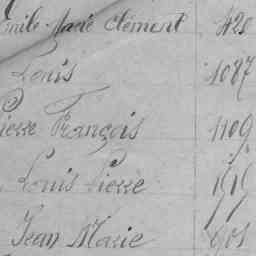 Emile Marie Clément 420
Louis 1087
Pierre François 1109
Louis Pierre 1919
Jean Marie 901